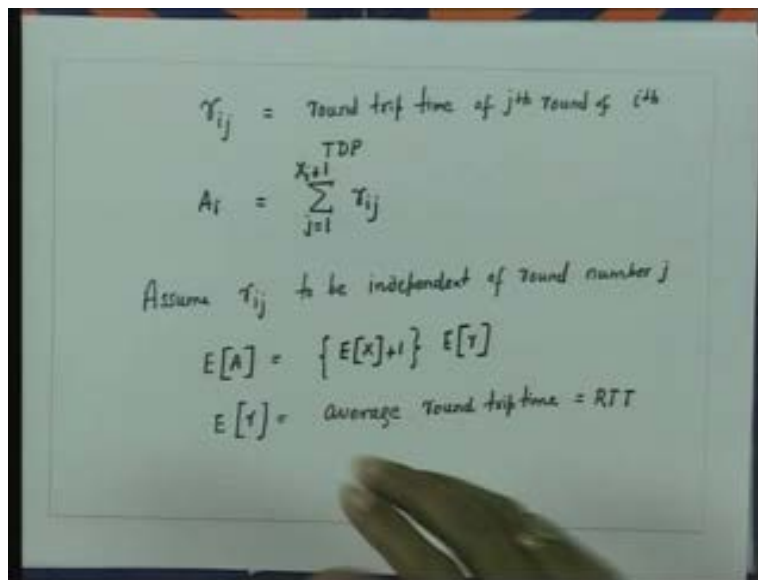 r_ij = round trip time of jth round of ith
TDP
A_i = \sum_{j=1}^{X_i+1} r_ij
Assume r_ij to be independent of round number j
E[A] = { E[X]+1 } E[r]
E[r] = average round trip time = RTT